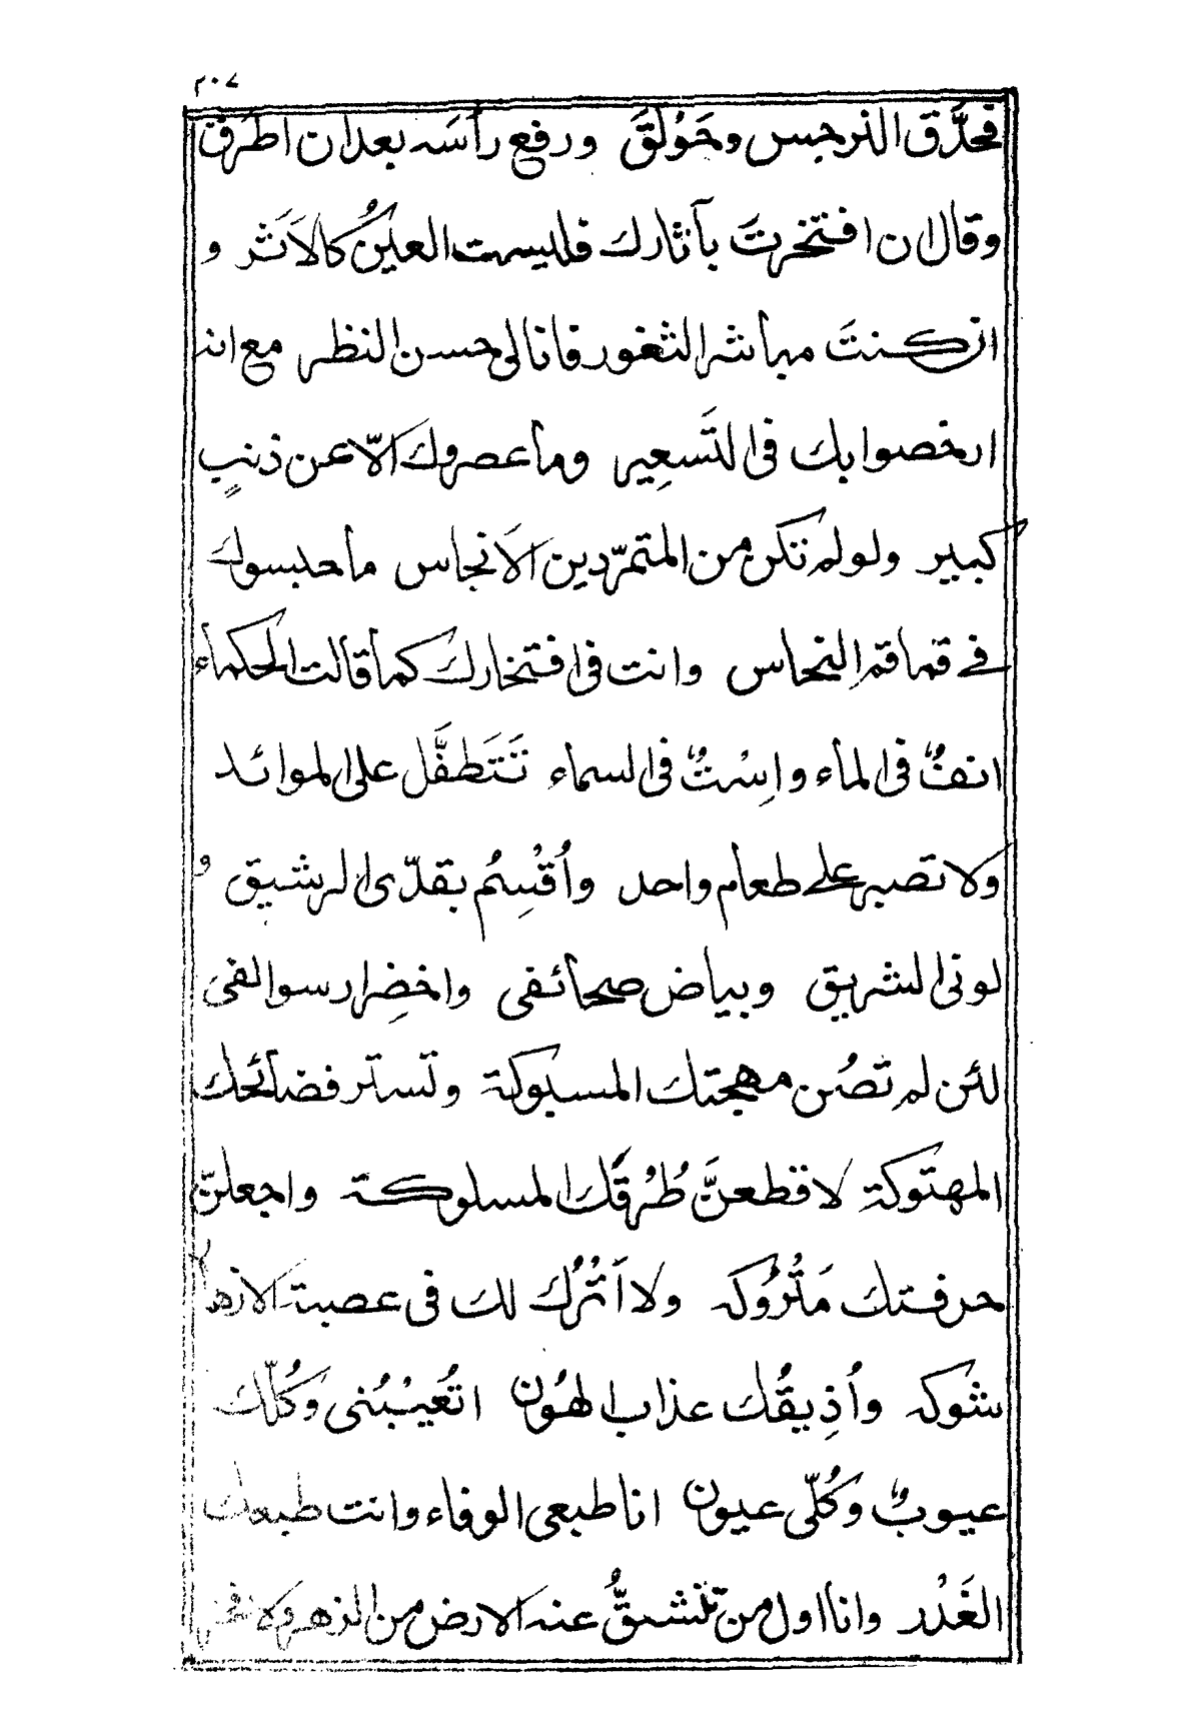 ٢٠٧
فحدَّق النرجس وحَوْلَقَ ورفع رأسَه بعد ان اطرق
وقال ان افتخرتَ بآثارك فليست العينُ كالاَثَر و
ان كنتَ مباشر الثغور فانا لى حسن النظر مع انه
ارخصوا بك فى التَسعِير وما عصروك الاّ عن ذنبٍ
كبير ولو لم تكن من المتمرّدين الاَنجاس ما حبسوك
فى قماقمِ النحاس وانت فى افتخارك كما قالت الحكماء
انفٌ فى الماء واِسْتٌ فى السماء تَتَطفَّل على الموائد
ولا تصبر على طعام واحد واُقْسِمُ بقدّى الرشيق و
لونى الشريق وبياض صحائفى واخضِرار سوالفى
لئن لم تَصُن مهجتك المسبوكة وتستر فضائحك
المهتوكة لاقطعنَّ طُرُقَك المسلوكة واجعلنّ
حرفتك مَتْرُوكه ولا اَتْرُكُ لك فى عصبة الازهار
شوكه واُذِيقُك عذاب الهُون اتُعَيْبُنى وَكُلّك
عيوبٌ وكُلّى عيون انا طبعى الوفاء وانت طبعك
الغَدْر وانا اول من تنشقُّ عنه الارض من الزهر ولا فخر